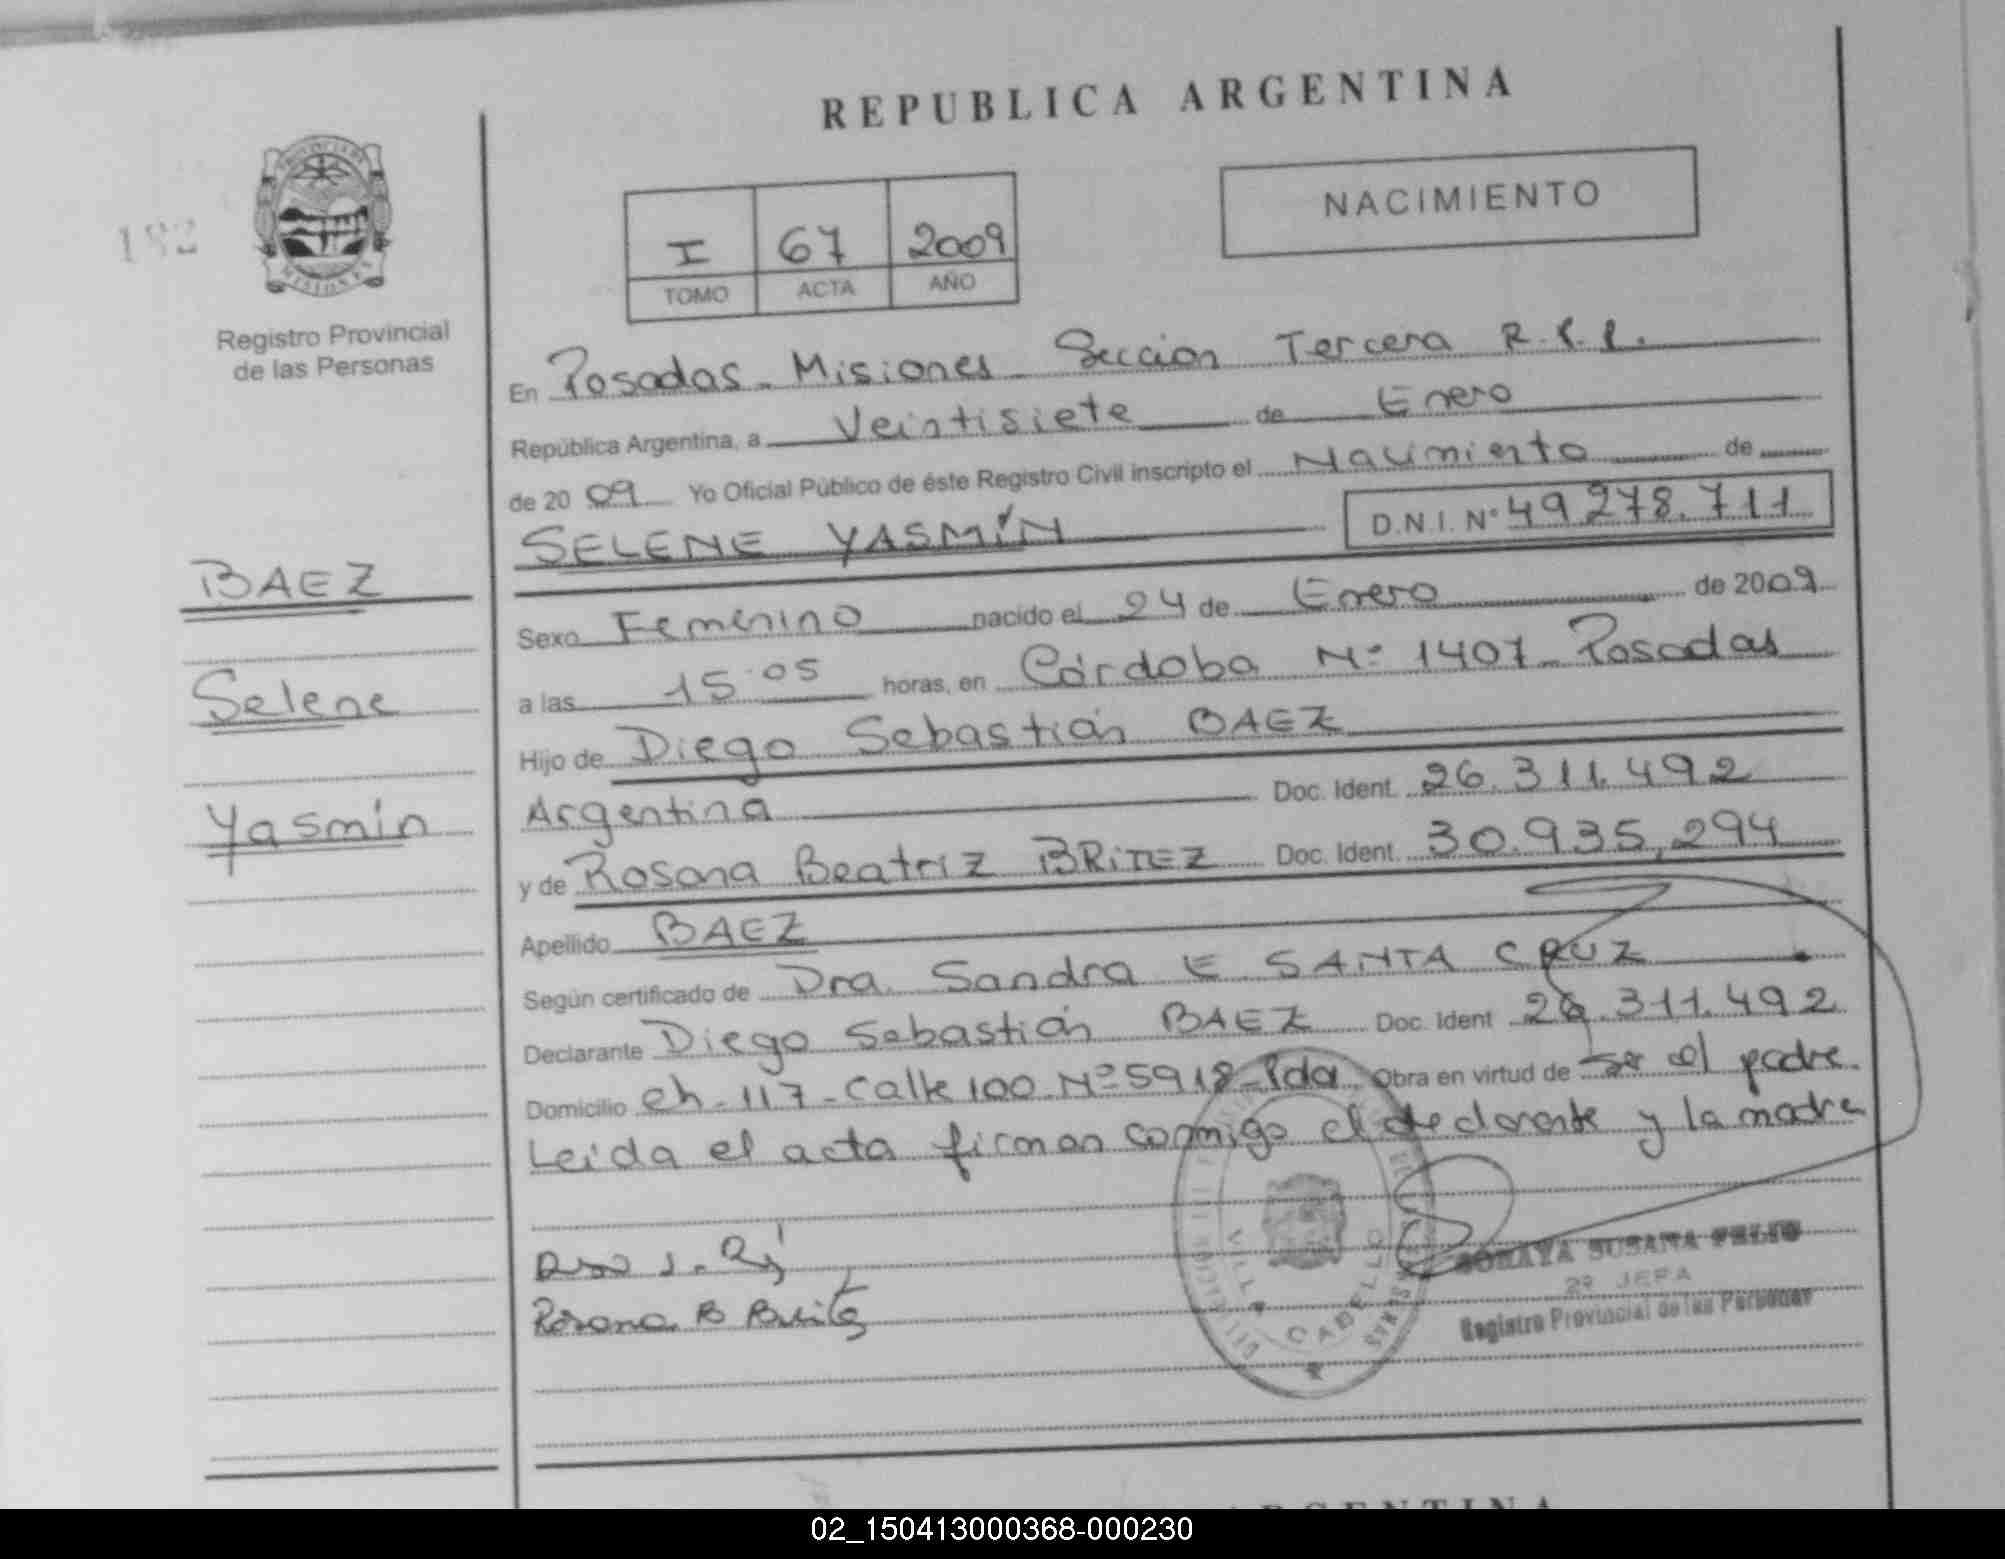 REPUBLICA ARGENTINA
182
PROVINCIA DE
MISIONES
Registro Provincial
de las Personas
I 67 2009
TOMO ACTA AÑO
NACIMIENTO
En Posadas - Misiones - Sección Tercera R.P.P.
República Argentina, a Veintisiete de Enero
de 2009 Yo Oficial Público de éste Registro Civil inscripto el Nacimiento de
SELENE YASMÍN D.N.I. Nº 49.278.711
BAEZ
Selene
Yasmín
Sexo Femenino nacido el 24 de Enero de 2009
a las 15:05 horas, en Córdoba Nº 1407 - Posadas
Hijo de Diego Sebastián BAEZ
Argentina Doc. Ident. 26.311.492
y de Rosana Beatriz BRITEZ Doc. Ident. 30.935.294
Apellido BAEZ
Según certificado de Dra. Sandra E SANTA CRUZ
Declarante Diego Sebastián BAEZ Doc. Ident 26.311.492
Domicilio ch - 117 - Calle 100 - Nº 5918 - Pdas Obra en virtud de ser el padre.
Leida el acta firman conmigo el declarante y la madre
Rosana B Britez
VILLA CABELLO
SORAYA SUSANA FELIU
2º JEFA
Registro Provincial de las Personas
ARGENTINA
02_150413000368-000230